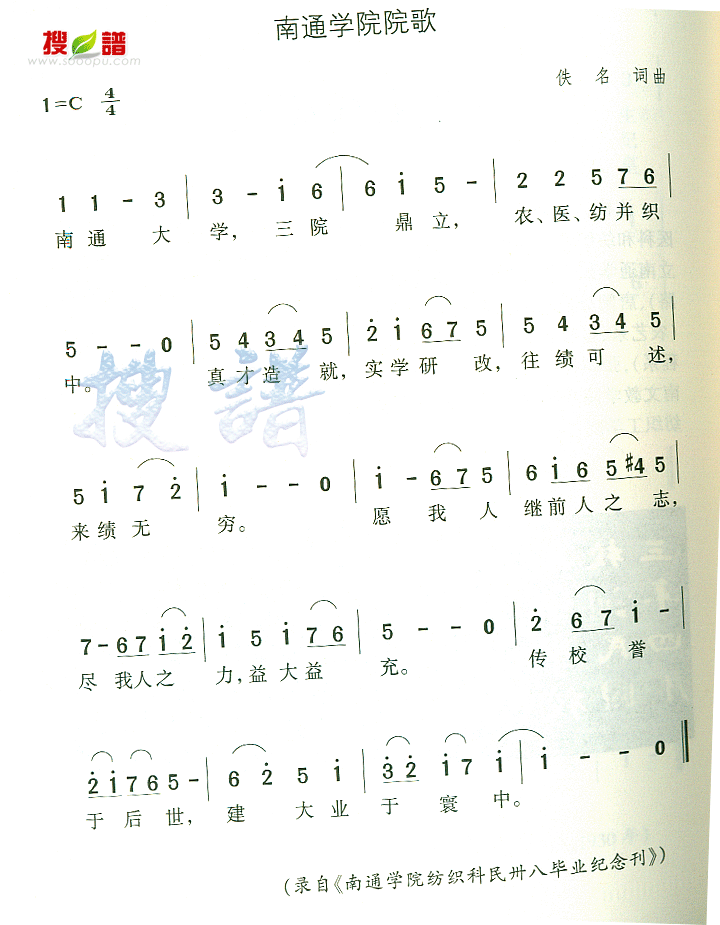 南通学院院歌
搜谱
www.sooopu.com
佚 名 词曲
1=C 4/4
1 1 - 3 | 3 - i 6 | 6 i 5 - | 2 2 5 7 6 |
南 通 大 学, 三 院 鼎 立, 农、医、纺 并 织
5 - - 0 | 5 4 3 4 5 | 2̇ i 6 7 5 | 5 4 3 4 5 |
中。 真 才 造 就, 实 学 研 改, 往 绩 可 述,
搜譜
5 i 7 2̇ | i - - 0 | i - 6 7 5 | 6 i 6 5 #4 5 |
来 绩 无 穷。 愿 我 人 继 前 人 之 志,
7 - 6 7 i 2̇ | i 5 i 7 6 | 5 - - 0 | 2̇ 6 7 i - |
尽 我 人 之 力, 益 大 益 充。 传 校 誉
2̇ i 7 6 5 - | 6 2̇ 5 i | 3̇ 2̇ i 7 i | i - - 0 ‖
于 后 世, 建 大 业 于 寰 中。
(录自《南通学院纺织科民卅八毕业纪念刊》)